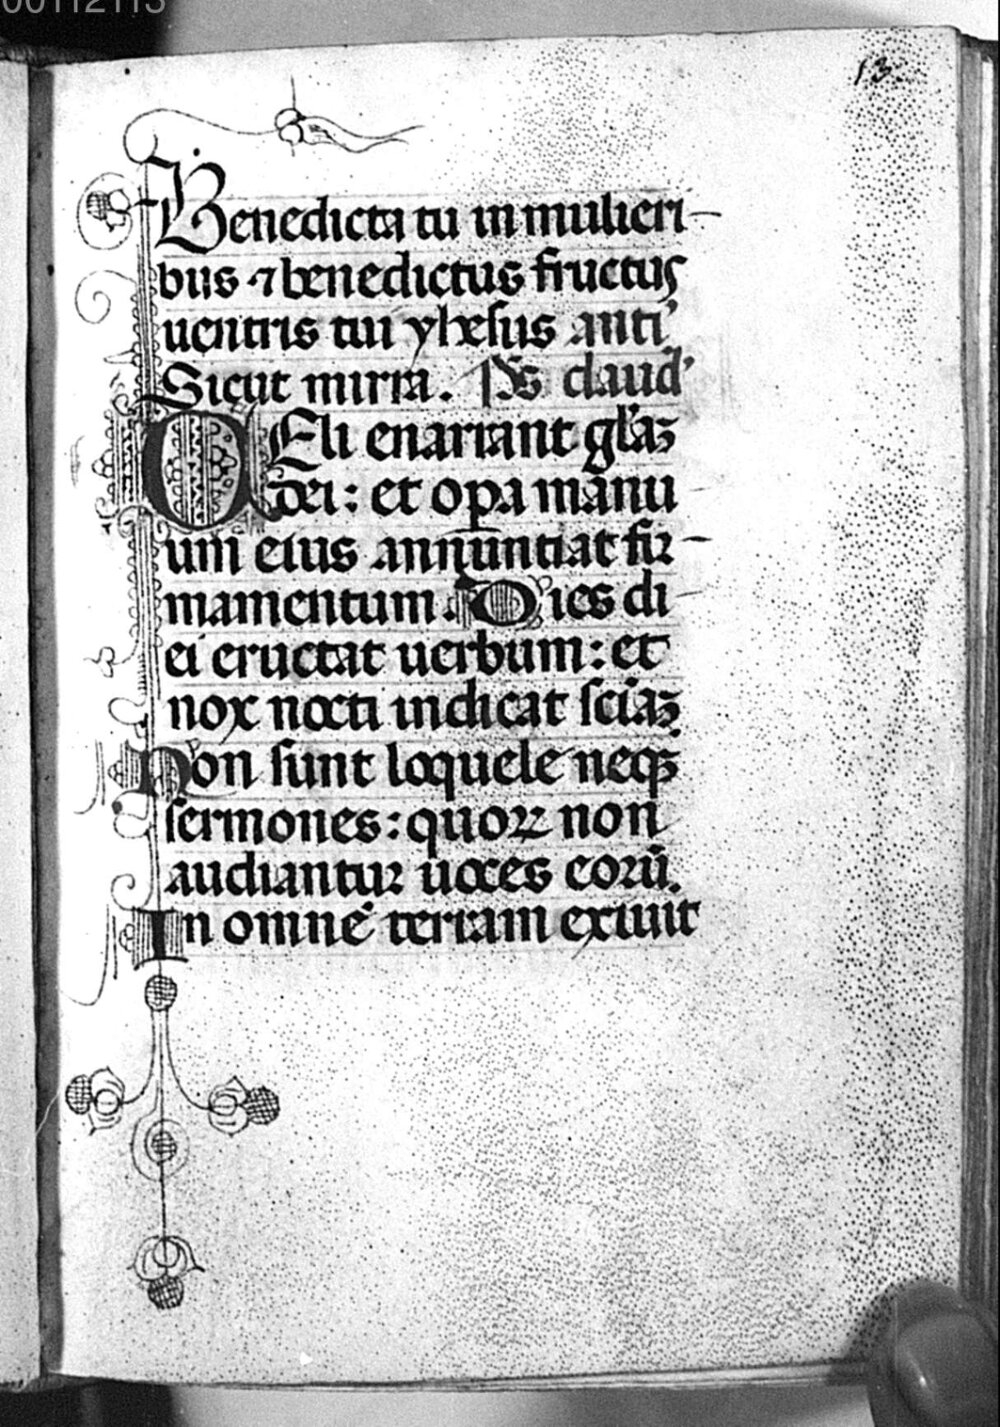 00112113
13
Benedicta tu in mulieri-
bus ⁊ benedictus fructus
uentris tui yhesus anti
Sicut mirra. Ps dauid'
CEli enarrant gl'aꝫ
dei: et opa manu
um eius annuntiat fir-
mamentum. Dies di-
ei eructat uerbum: et
nox nocti indicat sciaꝫ
Non sunt loquele neqꝫ
sermones: quoꝝ non
audiantur uoces coꝝū.
In omnē terram exiuit